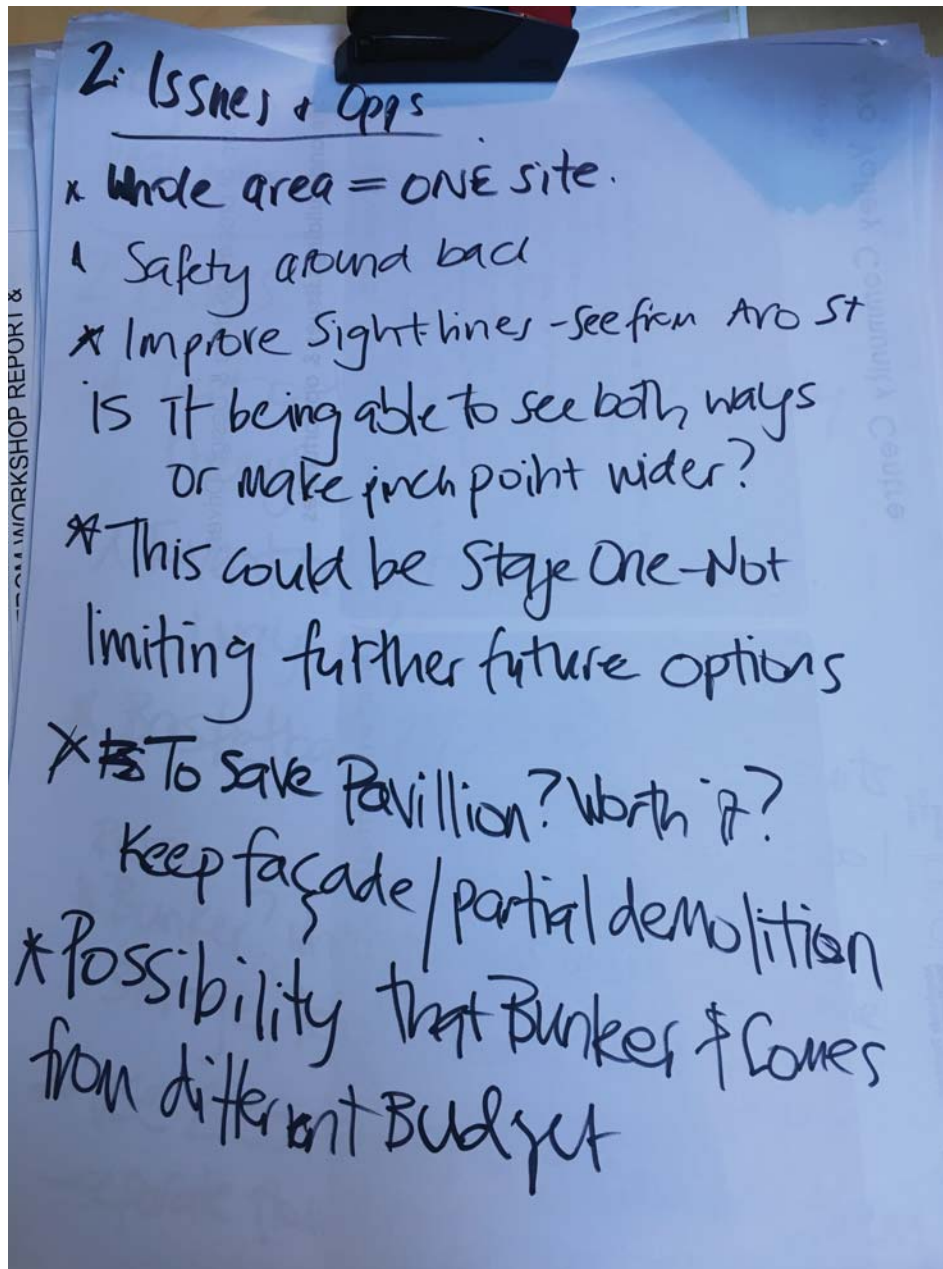 2: Issues + Opps
x Whole area = ONE site.
Safety around back
* Improve Sightlines - see from Aro St
is it being able to see both ways
or make pinch point wider?
* This could be Stage One - Not
limiting further future options
x To Save Pavillion? Worth it?
Keep façade / partial demolition
* Possibility that Bunker $ Comes
from different Budget
WORKSHOP REPORT &
Community Centre